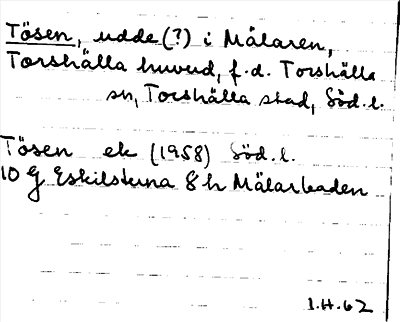 Tösen, udde (?) i Mälaren,
Torshälla huvud, f.d. Torshälla
sn, Torshälla stad, Söd. l.
Tösen ek (1958) Söd. l.
10 G Eskilstuna 8 h Mälarbaden
I.H. 62